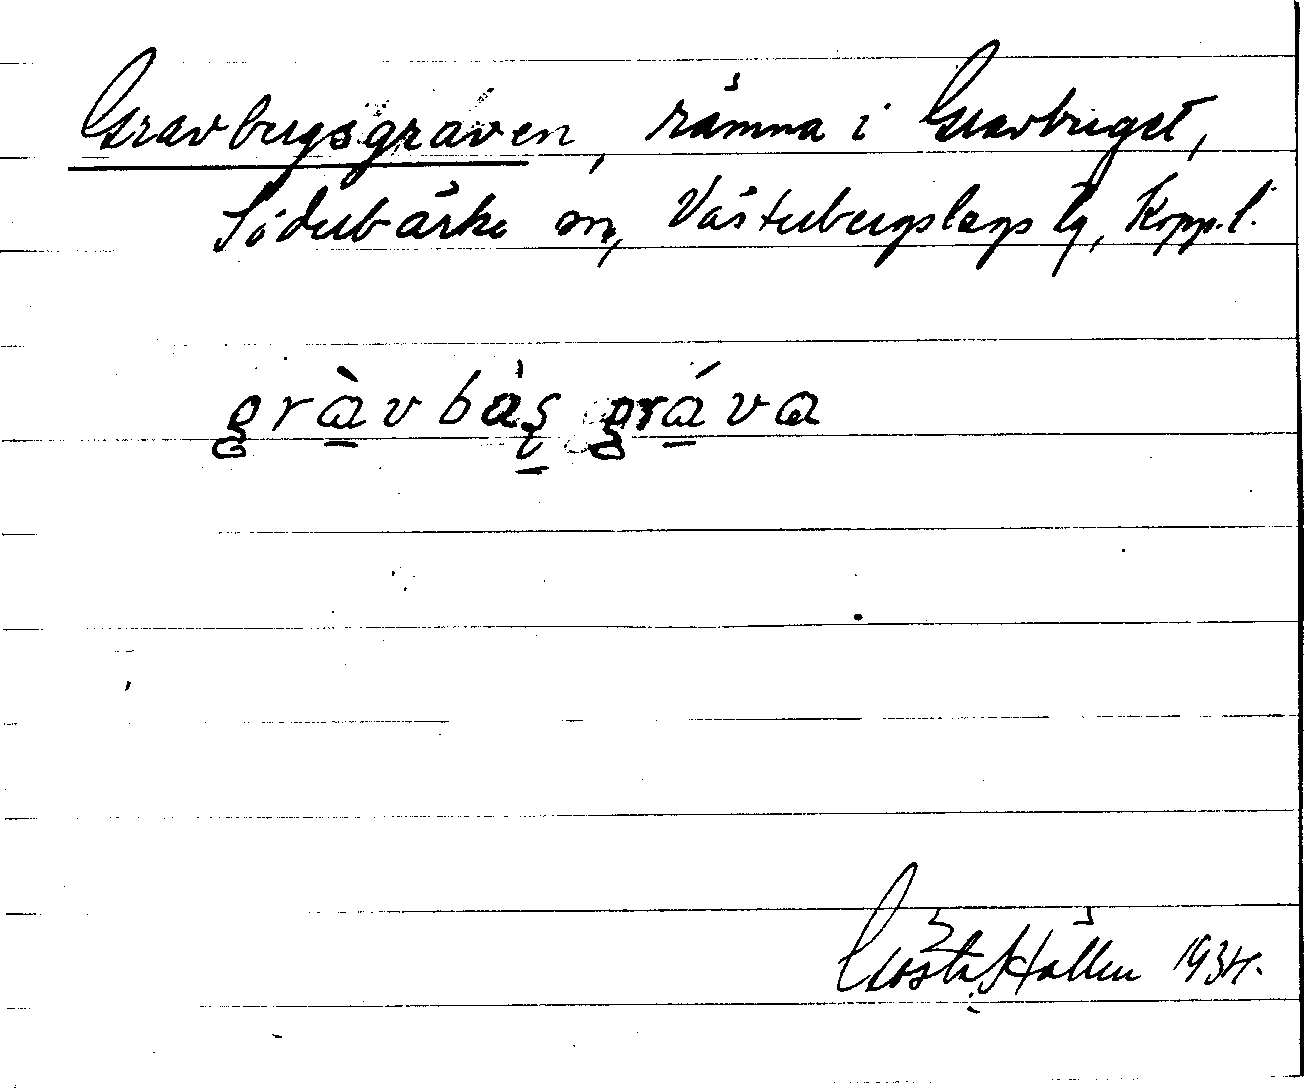 Gravbergsgraven, rämna i Gravberget,
Söderbärke sn, Västerbergslags tg, Kopp. l.
gràvbàṣ gráva
Gösta Hållen 1934.